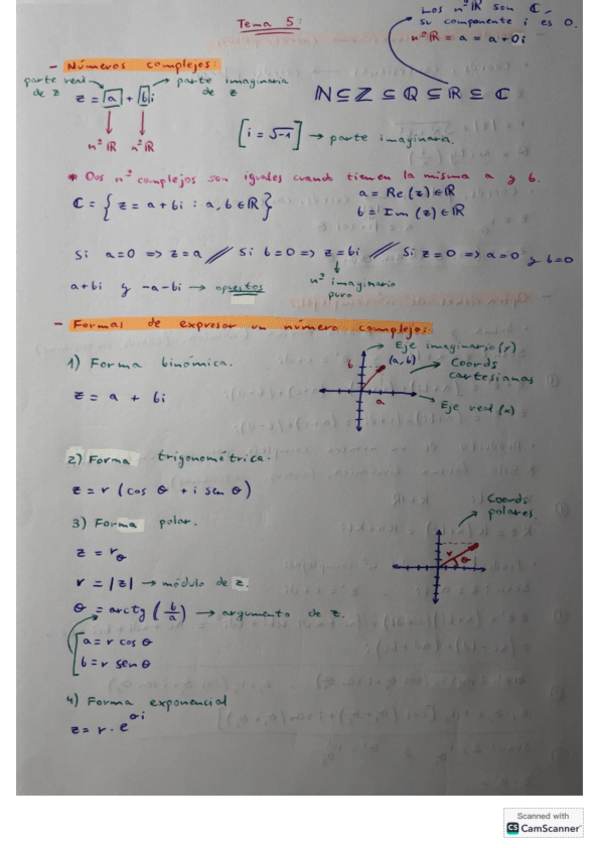 Tema 5:
Los nº ℝ son ℂ,
su componente i es 0.
nº ℝ = a = a + 0i
- Números complejos:
parte real de z
parte imaginaria de z
z = a + bi
nº ℝ nº ℝ
ℕ ⊆ ℤ ⊆ ℚ ⊆ ℝ ⊆ ℂ
[i = √-1] → parte imaginaria.
* Dos nº complejos son iguales cuando tienen la misma a y b.
ℂ = { z = a + bi : a, b ∈ ℝ }
a = Re (z) ∈ ℝ
b = Im (z) ∈ ℝ
Si a=0 => z=a // Si b=0 => z=bi // Si z=0 => a=0 y b=0
nº imaginario puro
a+bi y -a-bi → opuestos
- Formas de expresar un número complejos:
1) Forma binómica.
z = a + bi
Eje imaginario (y)
b
(a,b)
Coords cartesianas
a
Eje real (x)
2) Forma trigonométrica.
z = r (cos θ + i sen θ)
3) Forma polar.
Coords polares.
r
θ
z = r_θ
r = |z| → módulo de z.
θ = arctg (b/a) → argumento de z.
a = r cos θ
b = r sen θ
4) Forma exponencial
z = r · e^θi
Scanned with
CS CamScanner